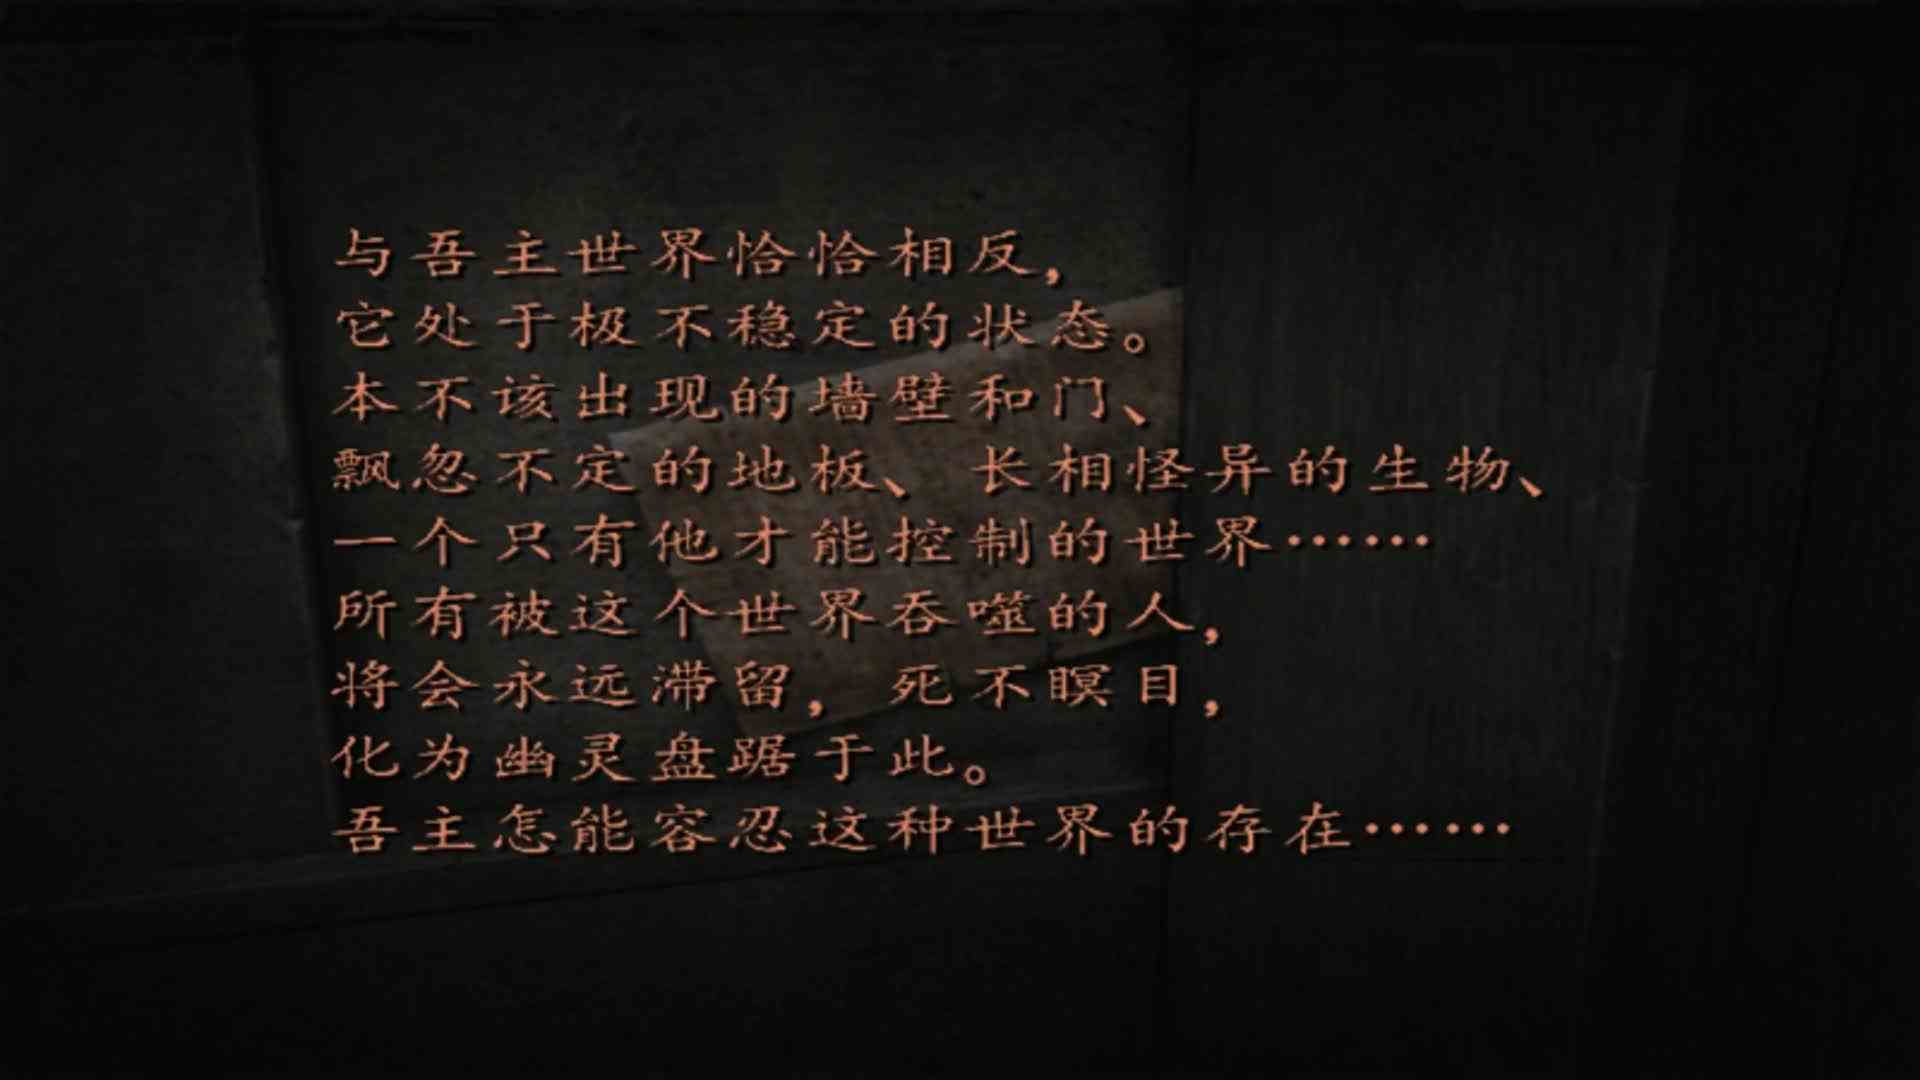 与吾主世界恰恰相反，
它处于极不稳定的状态。
本不该出现的墙壁和门、
飘忽不定的地板、长相怪异的生物、
一个只有他才能控制的世界……
所有被这个世界吞噬的人，
将会永远滞留，死不瞑目，
化为幽灵盘踞于此。
吾主怎能容忍这种世界的存在……